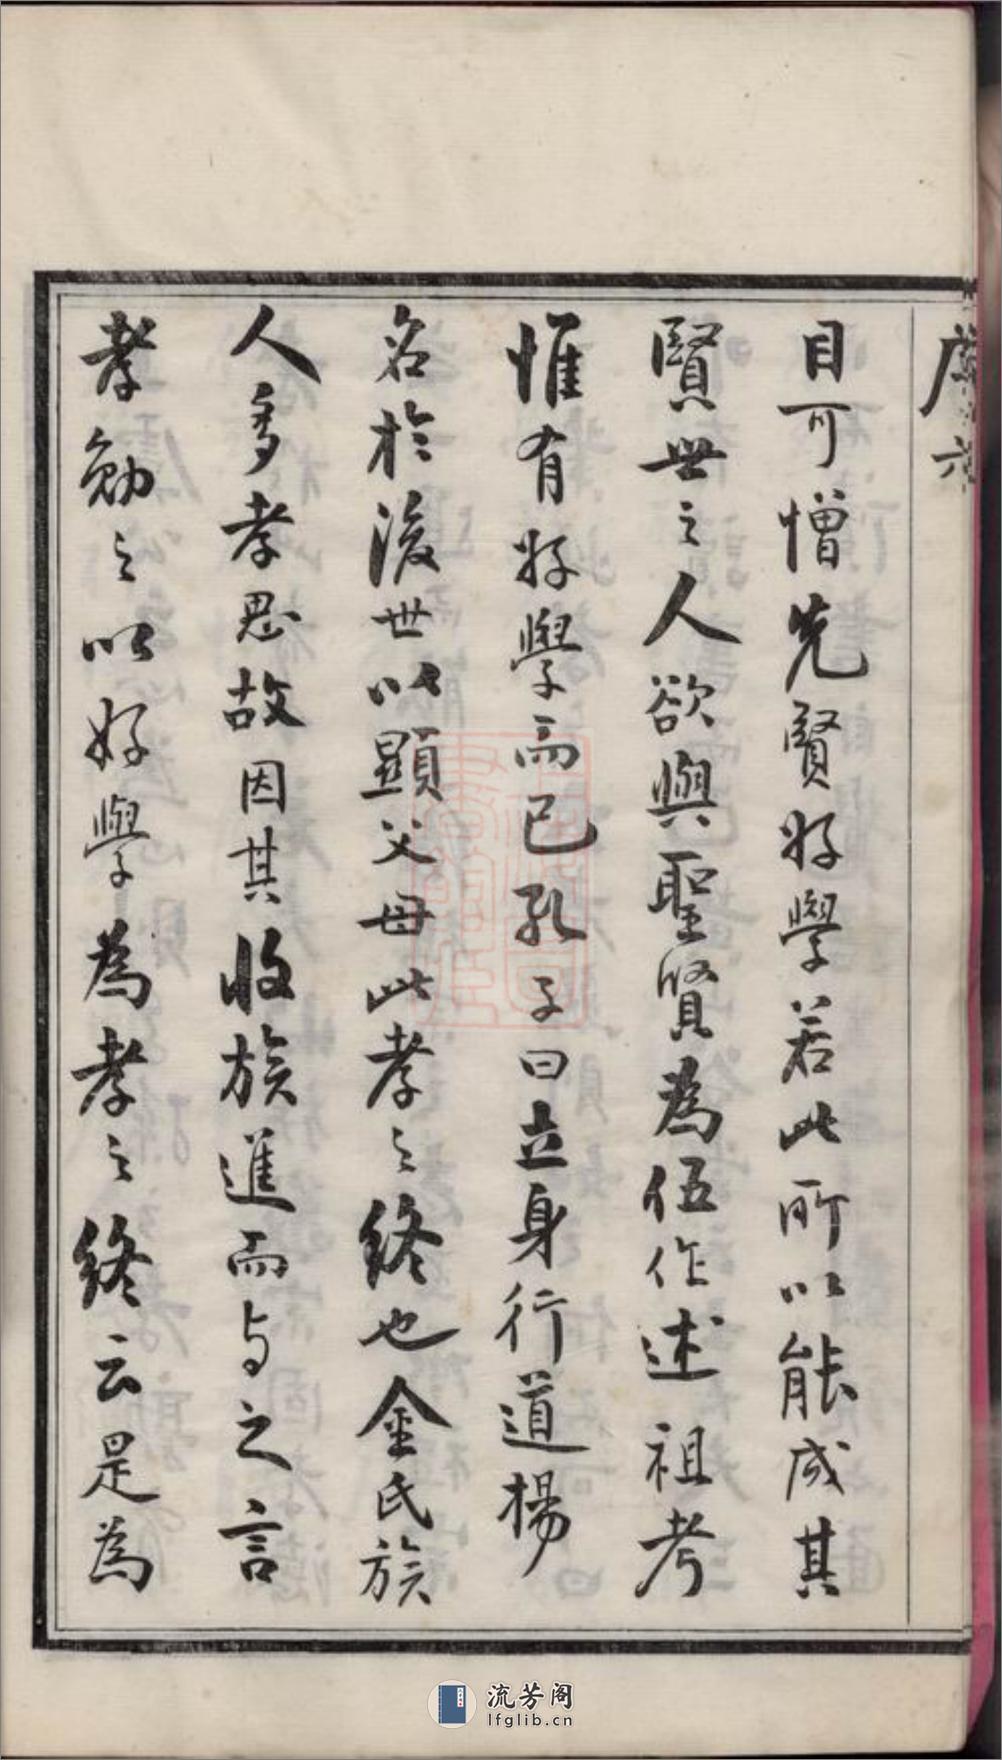 序 六
目可憎先賢好學若此所以能成其
賢世之人欲與聖賢為伍作述祖考
惟有好學而已孔子曰立身行道揚
名於後世以顯父母此孝之終也金氏族
人多孝思故因其收族進而与之言
孝勉之以好學為孝之終云是為
流芳阁
lfglib.cn